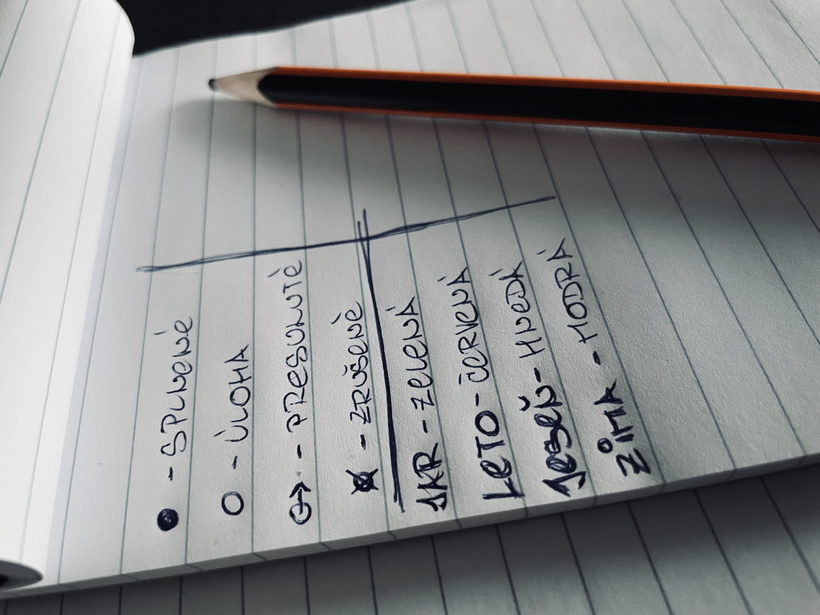 ● - SPLNENÉ
○ - ÚLOHA
⊖> - PRESUNUTÉ
✗ - ZRUŠENÉ
JAR - ZELENÁ
LETO - ČERVENÁ
JESEŇ - HNEDÁ
ZIMA - MODRÁ